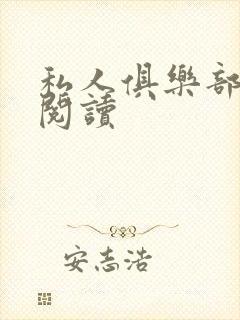 私人俱樂部
閱讀
安志浩